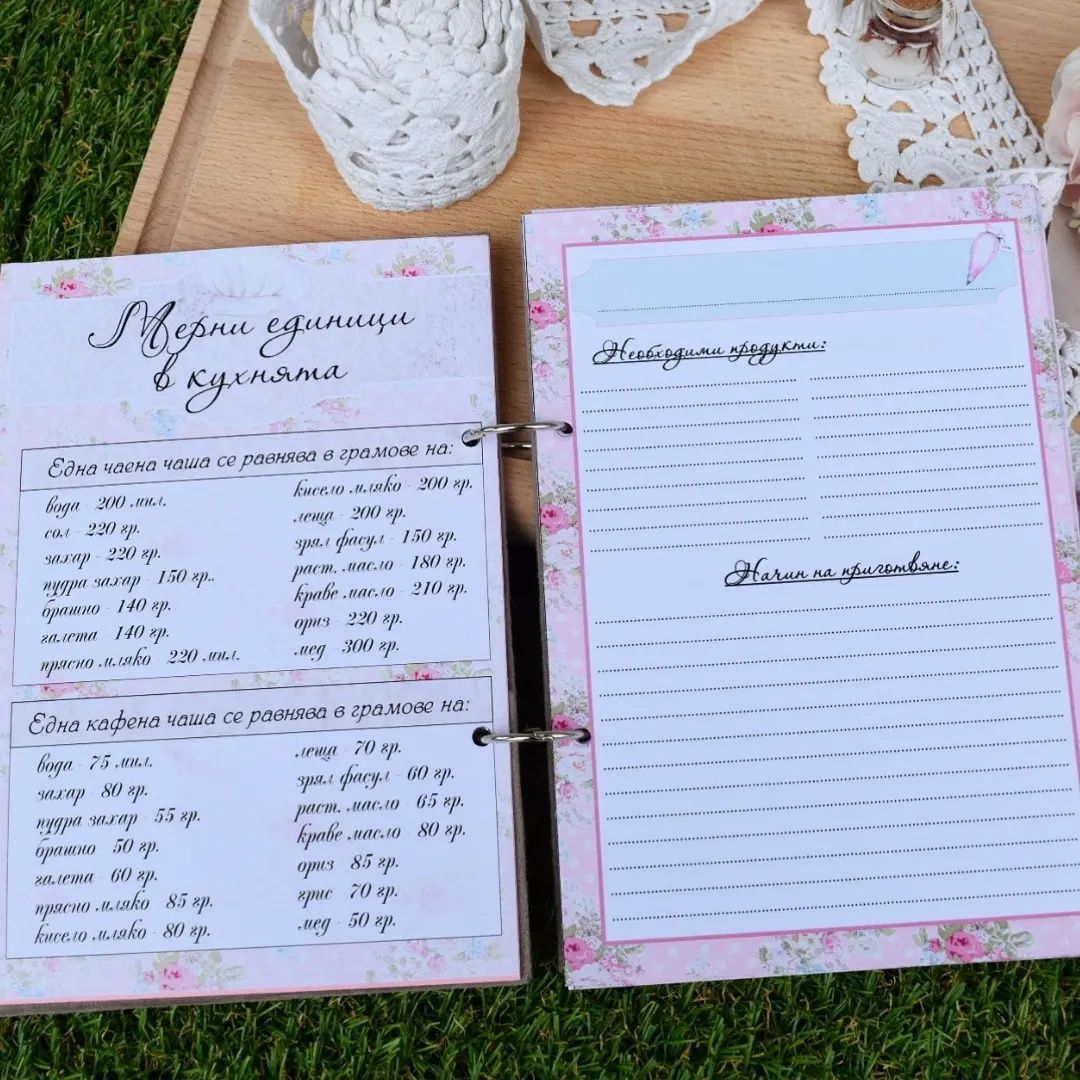 Мерни единици
в кухнята
Една чаена чаша се равнява в грамове на:
вода - 200 мил.
сол - 220 гр.
захар - 220 гр.
пудра захар - 150 гр..
брашно - 140 гр.
галета - 140 гр.
прясно мляко - 220 мил.
кисело мляко - 200 гр.
леща - 200 гр.
зрял фасул - 150 гр.
раст. масло - 180 гр.
краве масло - 210 гр.
ориз - 220 гр.
мед - 300 гр.
Една кафена чаша се равнява в грамове на:
вода - 75 мил.
захар - 80 гр.
пудра захар - 55 гр.
брашно - 50 гр.
галета - 60 гр.
прясно мляко - 85 гр.
кисело мляко - 80 гр.
леща - 70 гр.
зрял фасул - 60 гр.
раст. масло - 65 гр.
краве масло - 80 гр.
ориз - 85 гр.
грис - 70 гр.
мед - 50 гр.
Необходими продукти:
Начин на приготвяне: